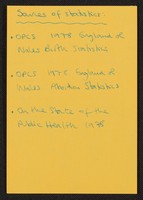 Sources of statistics:
• OPCS 1978 England &
Wales Birth Statistics
• OPCS 1977 England &
Wales Mortality Statistics
• On the State of the
Public Health 1978